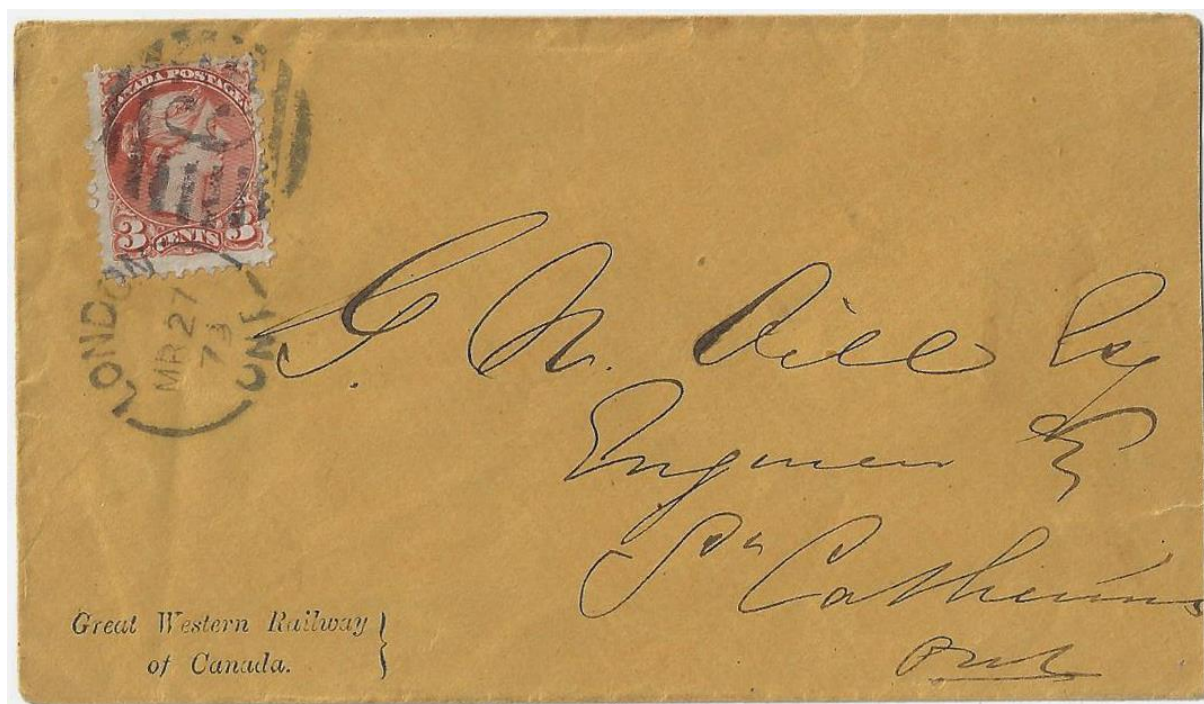 CANADA POSTAGE
3 CENTS 3
LONDON
MR 27
73
ONT
G. N. Dill Esq
Engineer &c
St Catherines
Ont
Great Western Railway
of Canada.